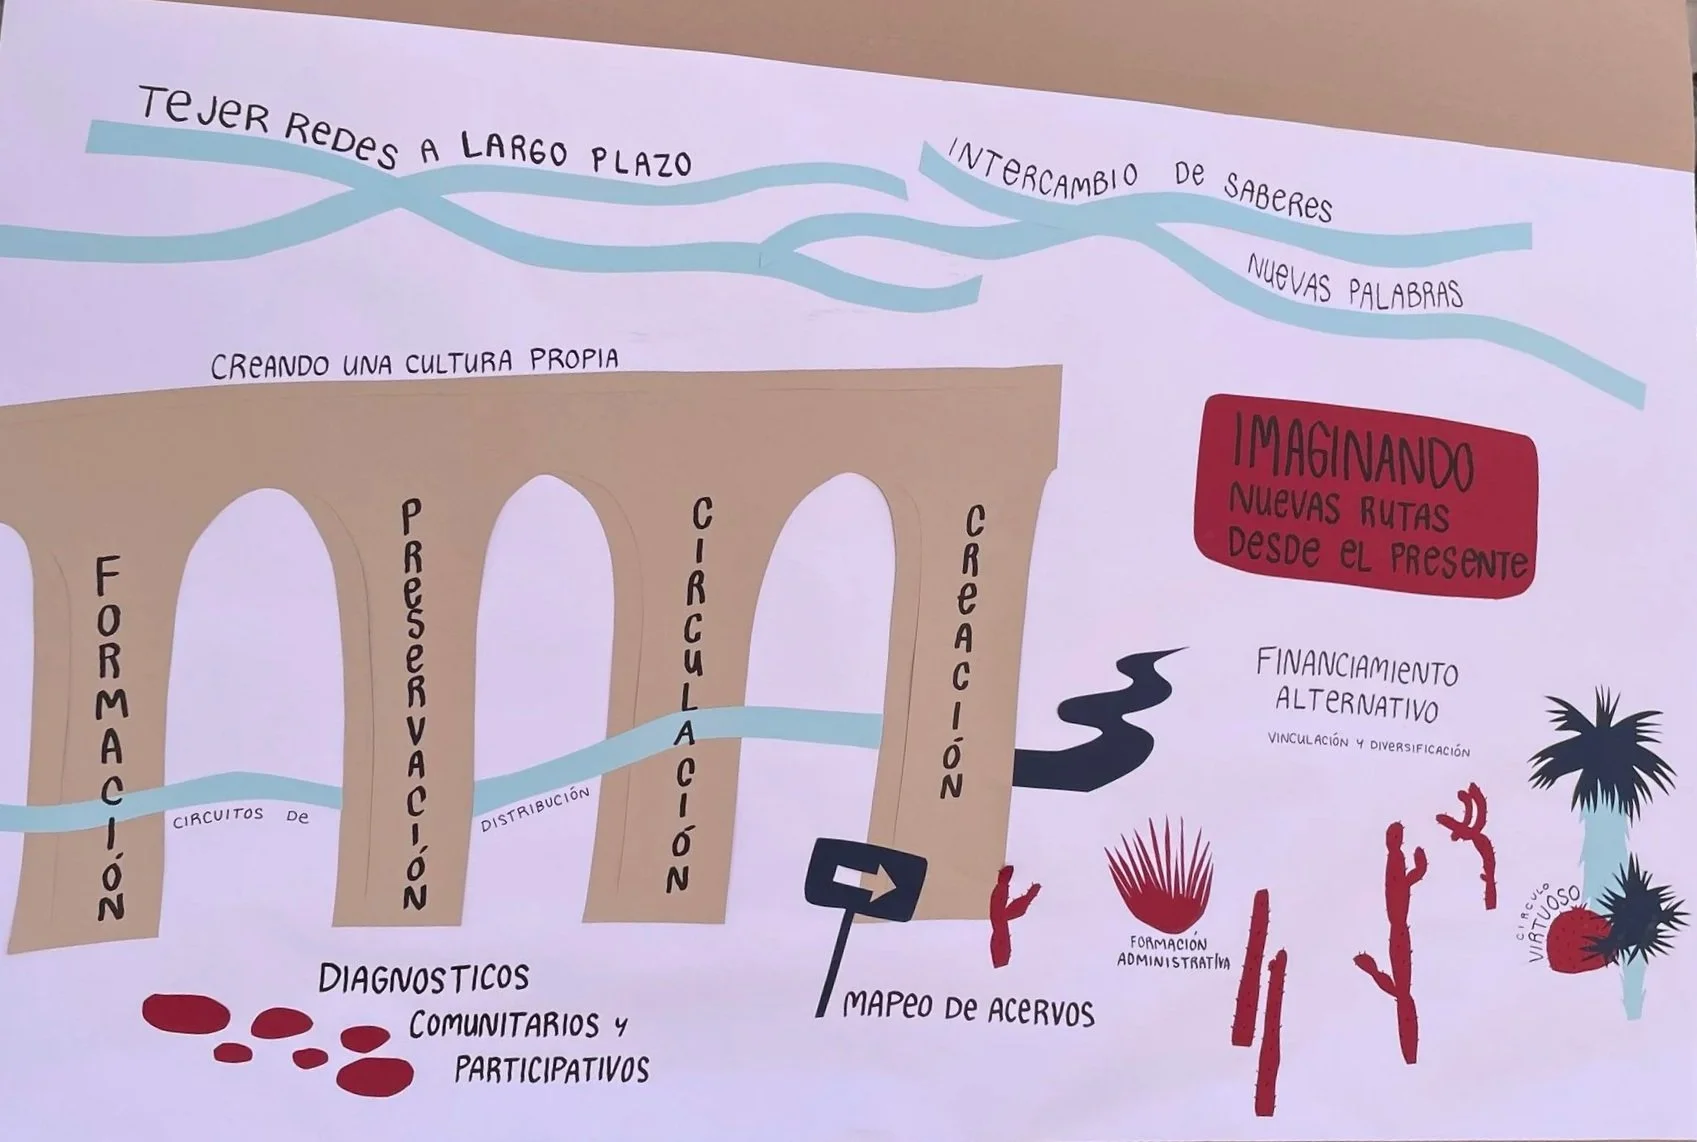 TEJER REDES A LARGO PLAZO
INTERCAMBIO DE SABERES
NUEVAS PALABRAS
CREANDO UNA CULTURA PROPIA
IMAGINANDO
NUEVAS RUTAS
DESDE EL PRESENTE
FORMACIÓN
PRESERVACIÓN
CIRCULACIÓN
CREACIÓN
CIRCUITOS DE
DISTRIBUCIÓN
FINANCIAMIENTO
ALTERNATIVO
VINCULACIÓN Y DIVERSIFICACIÓN
CIRCULO
VIRTUOSO
FORMACIÓN
ADMINISTRATIVA
DIAGNOSTICOS
COMUNITARIOS Y
PARTICIPATIVOS
MAPEO DE ACERVOS